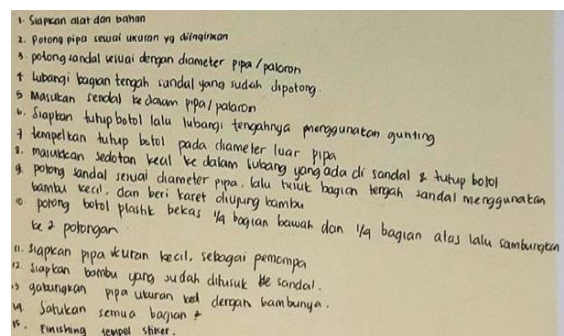 1. Siapkan alat dan bahan
2. Potong pipa sesuai ukuran yg diinginkan
3. potong sandal sesuai dengan diameter pipa / paloron
4 Lubangi bagian tengah sandal yang sudah dipotong.
5 Masukan sendal ke dalam pipa / palaron
6. Siapkan tutup botol lalu lubangi tengahnya menggunakan gunting
7 tempelkan tutup botol pada diameter luar pipa
8. masukkan sedotan kecil ke dalam lubang yang ada di sandal & tutup botol
9. potong sandal sesuai diameter pipa, lalu tusuk bagian tengah sandal menggunakan
bambu kecil, dan beri karet diujung bambu
10. potong botol plastik bekas 1/4 bagian bawah dan 1/4 bagian atas lalu sambungkan
ke 2 potongan
11. Siapkan pipa ukuran kecil, sebagai pemompa
12. Siapkan bambu yang sudah ditusuk ke sandal.
13 gabungkan pipa ukuran kecil dengan bambunya.
14 Satukan semua bagian
15. Finishing tempel stiker.